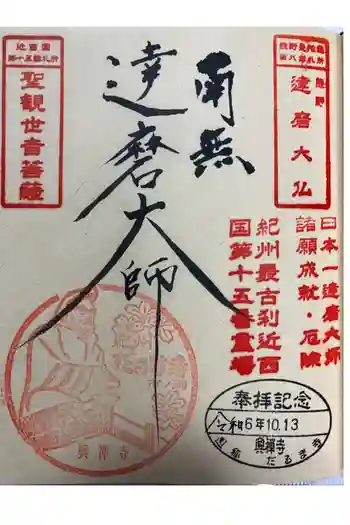 熊野曼陀羅
第八番札所
熊野
達磨大仏
日本一達磨大師
諸願成就・厄除
紀州最古刹近西
国第十五番霊場
南無
達磨大師
近西国
第十五番札所
聖観世音菩薩
興禅寺
奉拝記念
令和6年10.13
興禅寺
だるま寺